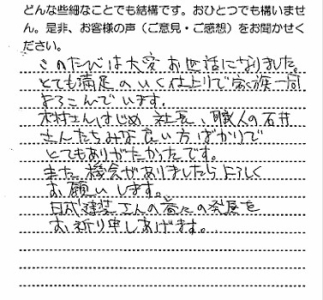 どんな些細なことでも結構です。おひとつでも構いませ
ん。是非、お客様の声（ご意見・ご感想）をお聞かせく
ださい。
このたびは大変お世話になりました。
とても満足のいく仕上りで家族一同
よろこんでいます。
木村さんはじめ 社長、職人の石井
さんたちみな良い方ばかりで
とてもありがたかったです。
また機会がありましたらよろしく
お願いします。
日成建装さんの益々の発展を
お祈り申しあげます。